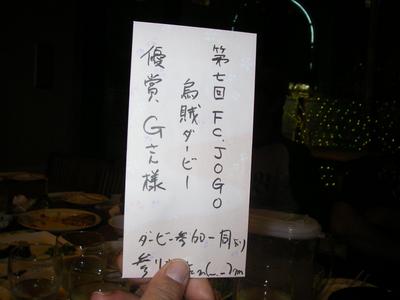 第七回FC.JOGO
烏賊ダービー
優賞、Gさん様
ダービー参加一同より
参りましたm(_ _)m